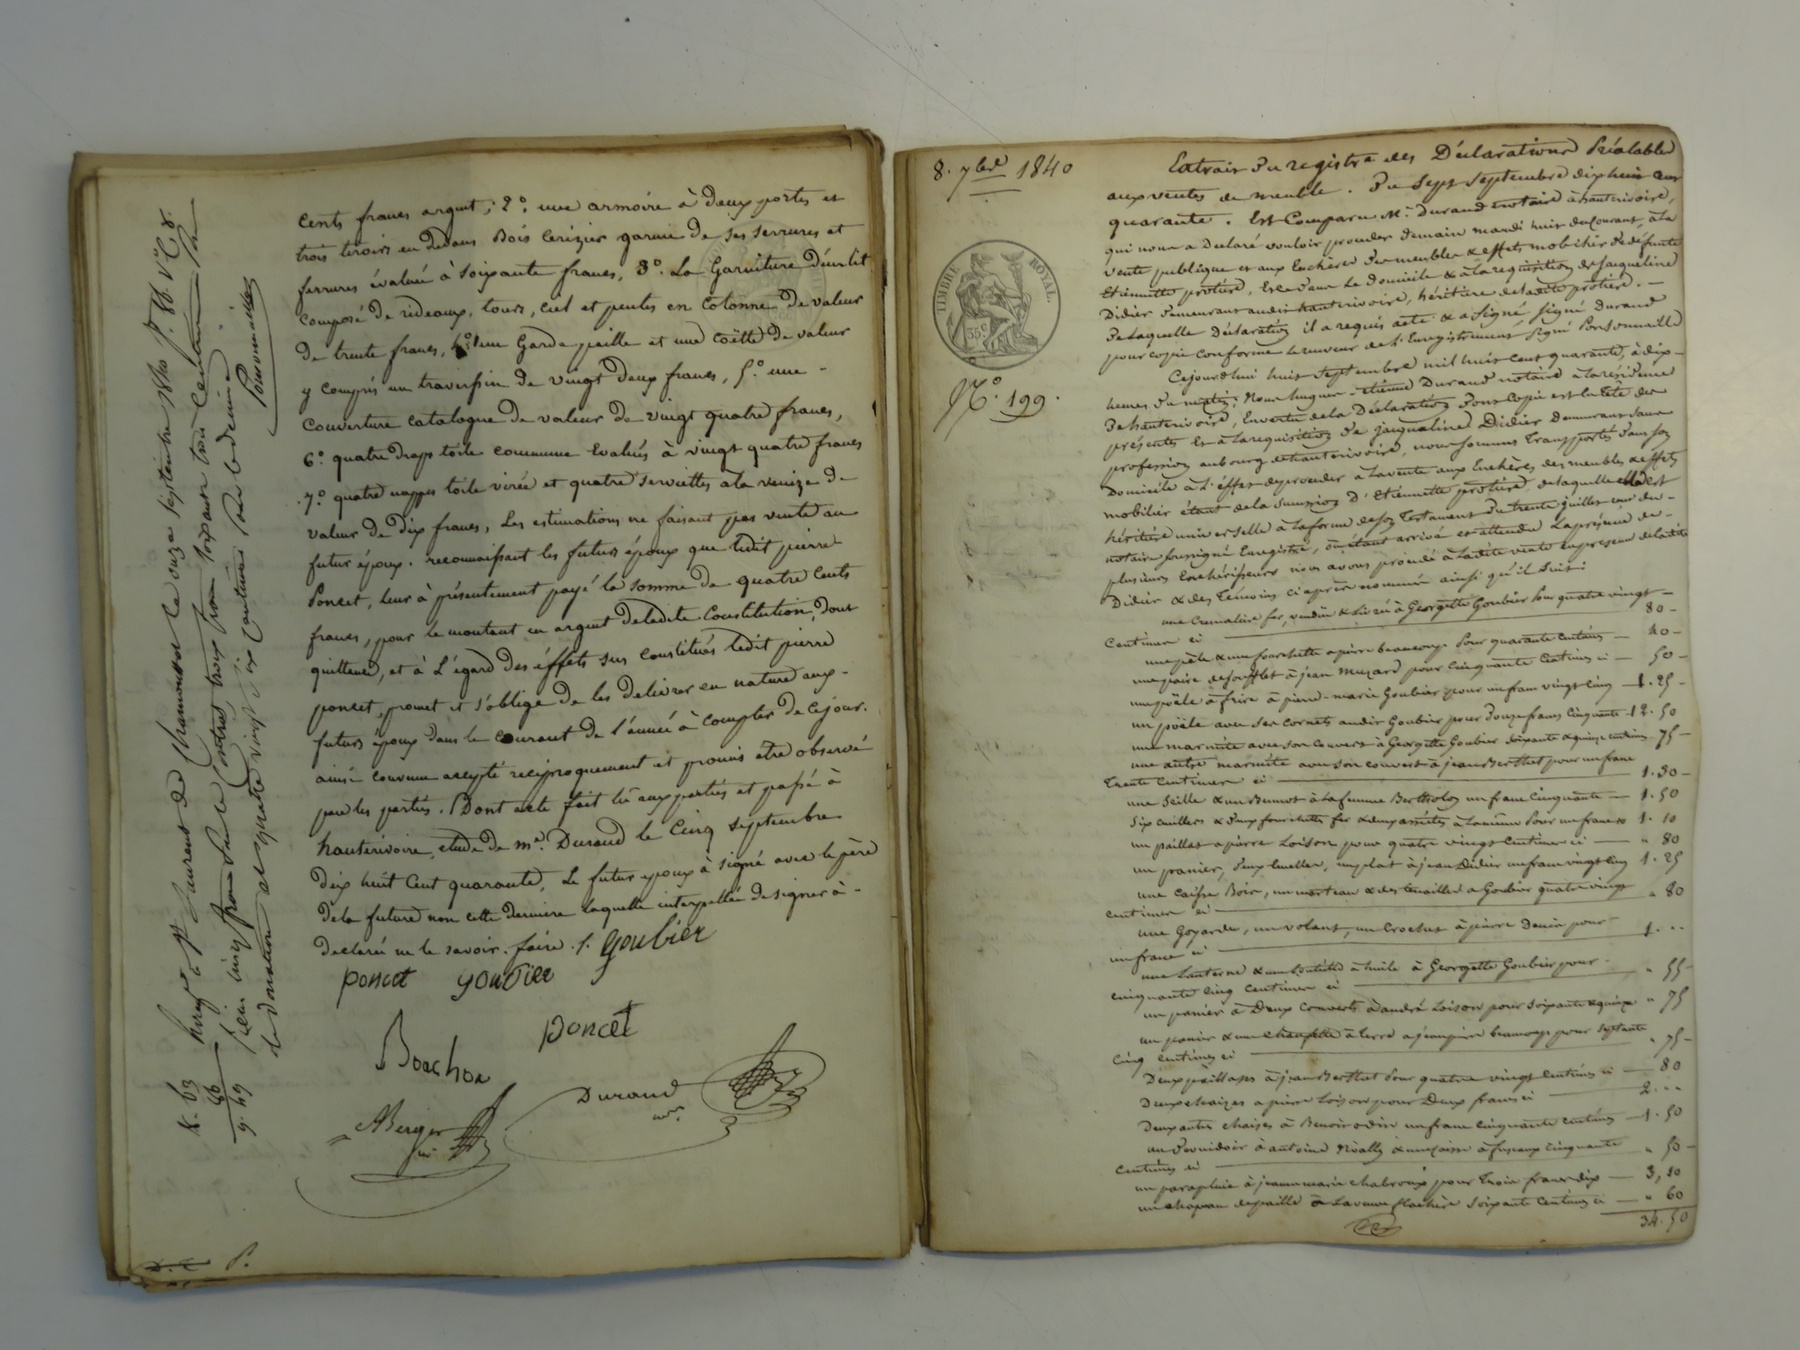 cents francs argent; 2.° une armoire à deux portes et
trois tiroirs en dedans Bois Cerizier garnie de ses serrures et
ferrures évaluée à soixante francs, 3.° La Garniture d'un lit
composé de rideaux, tours, ciel et pentes en Cotonne de valeur
de trente francs, 4.° une Garde paille et une coëtte de valeur
y compris un traversin de vingt deux francs, 5.° une
Couverture catalogue de valeur de vingt quatre francs,
6.° quatre draps toile commune Evalués à vingt quatre francs
7.° quatre nappes toile virée et quatre serviettes à la venize de
valeur de dix francs, Les estimations ne faisant pas vente au
futur époux. reconnaissant les futurs époux que ledit pierre
Poncet, leur à présentement payé la somme de quatre Cents
francs, pour le montant en argent de ladite Constitution, dont
quittance, et à L'égard des éffets sus constitués ledit pierre
poncet, promet et s'oblige de les delivrer en nature aux
futurs époux dans le courant de l'année à compter de ce jour.
ainsi convenu accepté reciproquement et promis etre observé
par les parties. Dont acte fait lu aux parties et passé à
hauterivoire, etude de m.e Durand le Cinq septembre
dix huit Cent quarante, Le futur epoux à signé avec le père
de la future non cette derniere laquelle interpellée de signer à
declaré ne le savoir faire ./. Goubier
poncet goubier
poncet
Bonchon
Durand
n.re
Berger
Enreg.é à S.t Laurent de Chamousset le onze septembre 1840 f.° 88. V.° C. 8.
pour le Contrat trois francs soixante trois Centimes
de donation et quatre vingt dix Centimes pour le decime
Ponsonnaille
8. 7bre 1840
TIMBRE ROYAL.
35 c
N.° 199.
Extrait du registre des Déclarations Préalables
aux ventes de meuble. Du Sept Septembre dix huit cent
quarante. Est Comparu M.e Durand notaire à hauterivoire,
qui nous a déclaré vouloir proceder demain mardi huit du Courant, à la
vente publique et aux Enchères des meubles & effets mobiliers de défunte
Etiennette protière, Ex dans le domicile & à la requisition de Jacqueline
Didier demeurant audit hauterivoire, héritière de ladite protière. —
De laquelle déclaration il a requis acte & a Signé, Signé Durand
pour copie conforme le receveur de l'Enregistrement, Signé Ponsonnaille
Cejourd'hui huit Septembre mil huit cent quarante, à dix
heures du matin; Nous hugues-étienne Durand notaire à la résidence
de hauterivoire, En vertu de la Déclaration dont Copie est la tête des
présentes Et à la requisition de Jacqueline Didier demeurant sans
profession au bourg de hauterivoire, nous sommes transportés dans son
Domicile à l'effet de proceder à la vente aux Enchères des meubles & effets
mobilier étant de la Succession d'Etiennette protière, de laquelle elle est
héritière universelle à la forme de son Testament du trente juillet reçu du
notaire soussigné Enregistré, où étant arrivé et attendu la présence de
plusieurs Enchérisseurs nous avons procédé à ladite vente en présence de ladite
Didier & des témoins ci après nommés ainsi qu'il Suit:
une Cremaliere fer, vendue & livrée à Georgette Goubier pour quatre vingt
Centimes ci — 80 -
une pèle & une fourchette à pierre beaucoup pour quarante Centimes — 40 -
une paire de soufflet à jean Muzard pour Cinquante Centimes ci — 50 -
une poële à frire à pierre-marie Goubier pour un franc vingt Cinq — 1. 25 -
un poële avec ses cornets audit Goubier pour douze francs Cinquante - 12. 50
une marmite avec son couvert à Georgette Goubier soixante & quinze centimes 75 -
une autre marmite avec son couvert à jean Berthet pour un franc
Trente Centimes ci — 1. 30 -
une Seille & un Bennot à la femme Bertholon un franc Cinquante — 1. 50
Six cuillers & deux fourchettes fer & deux assiettes à la même pour un franc 10 1. 10
un paillat à pierre Loison pour quatre vingt Centimes ci — " 80
un panier, deux Ecuelles, un plat à jean Didier un franc vingt Cinq 1. 25
une Caisse Bois, un marteau & des tenailles à Goubier quatre vingt
centimes ci — " 80
une Goyarde, un volant, un Crochet à pierre Denis pour
un franc ci — 1. "
une lanterne & une Bouteille à huile à Georgette Goubier pour
cinquante cinq centimes ci — " 55 -
un panier à deux Couverts à andré Loison pour Soixante & quinze " 75
un panier & une à terre à jean pierre beaucoup pour Septante
Cinq centimes ci — " 75 -
Deux paillasses à jean Berthet pour quatre vingt Centimes ci — 80
Deux chaizes à pierre Loison pour Deux francs ci — 2. "
Deux autres chaises à Benoit odin un franc cinquante centimes — 1. 50
un Devidoir à antoine & une caisse à fuseaux Cinquante
Centimes ci — " 50 -
un parapluie à jeanne marie chabroux pour Trois francs dix — 3, 10
un chapeau de paille à la veuve flachère Soixante Centimes ci — " 60
34. 50